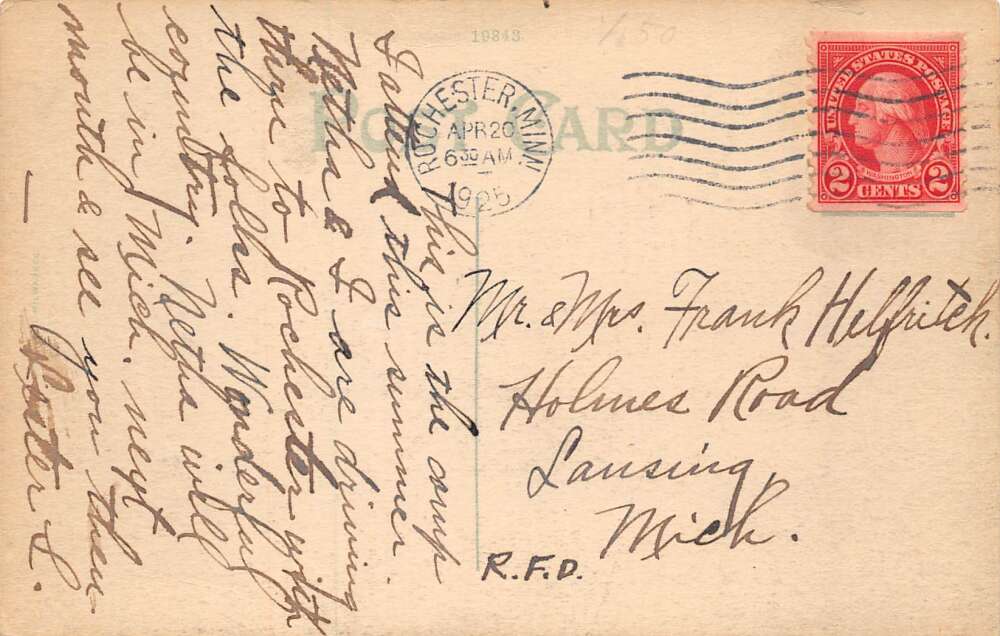 19843
POST CARD
ROCHESTER, MINN
APR 20
6 30 AM
UNITED STATES POSTAGE
WASHINGTON
2 CENTS 2
This is the camp
I attend this summer.
Netha & I are driving
thru to Rochester with
the folks. Wonderful
country. Netha will
be in Mich. next
month & see you then.
—
Mr. & Mrs. Frank Helfritch.
Holmes Road
Lansing,
Mich.
R.F.D.